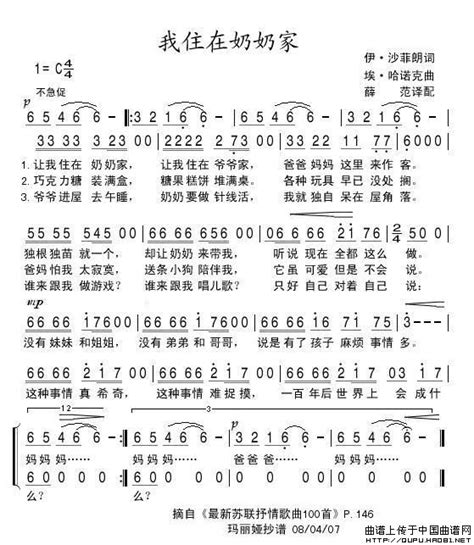 我住在奶奶家
1=C4/4
伊·沙菲朗词
埃·哈诺克曲
薛 范译配
不急促
p
6 5 4 6 6 - :‖: 3 2 1 6 6 - | 6 5 4 6 6 - | 3 2 1 6 6 - |
33 33 33 00 | 2222 2 73 00 | 33 33 22 1 77 | 6000 |
1. 让我住在 奶奶家, 让我住在 爷爷家, 爸爸妈妈 这里来作 客。
2. 巧克力糖 装满盒, 糖果糕饼 堆满桌。 各种玩具 早已没处 搁。
3. 爷爷进屋 去午睡, 奶奶要做 针线活, 我就独自 呆在屋角 落。
55 55 545 00 | 55 55 545 00 | 66 66 2 1 76 | 2/4 55 00 |
独根独苗 就一个, 却让奶奶 来带我, 听说现在 全都这么 做。
爸妈怕我 太寂寞, 送条小狗 陪伴我, 它虽可爱 但是不会 说。
谁来跟我 做游戏? 谁来跟我 唱儿歌? 只好自己 对着自己 说:
mp
66 66 17600 | 66 66 17600 | 66 66 16 71 75 | 3--- |
没有妹妹 和姐姐, 没有弟弟 和哥哥, 说是有了 孩子 麻烦 事情 多。
66 66 2 17 00 | 66 66 2 17 00 | 66 66 2 1 7 | 33 32 |
这种事情 真希奇, 这种事情 难捉摸, 一百年后 世界上 会 成什
12 3
p
6 5 4 6 6 - :‖ 6 5 4 6 6 - | 3 2 1 6 6 - | 6 5 4 6 6 - ‖
妈妈妈…… 妈妈妈…… 爸爸爸…… 妈妈妈……
6 0 0 0 :‖ 6 0 0 0 | 0 0 0 0 | 0 0 0 0 ‖
么? 么?
摘自《最新苏联抒情歌曲100首》P. 146
玛丽娅抄谱 08/04/07
曲谱上传于中国曲谱网
HTTP://QUPU.HAO81.NET